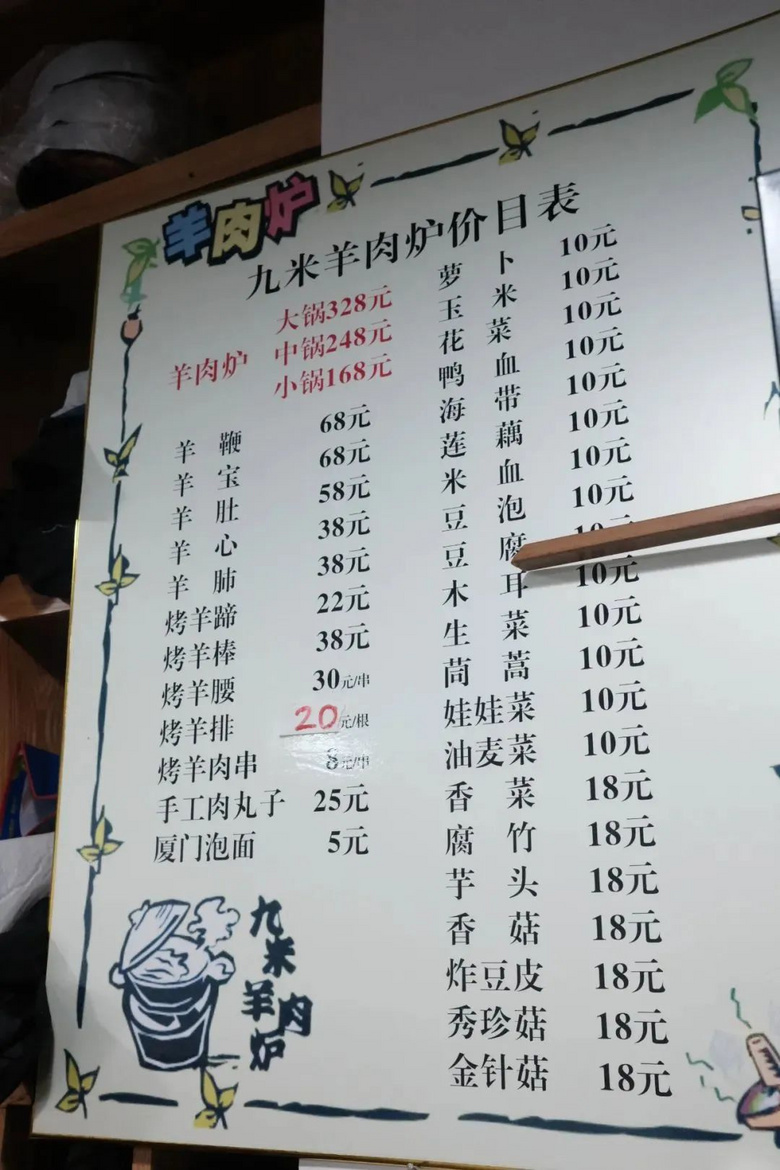 羊肉炉
九米羊肉炉价目表
羊肉炉
大锅328元
中锅248元
小锅168元
羊鞭 68元
羊宝 68元
羊肚 58元
羊心 38元
羊肺 38元
烤羊蹄 22元
烤羊棒 38元
烤羊腰 30元/串
烤羊排 20元/根
烤羊肉串 8元/串
手工肉丸子 25元
厦门泡面 5元
萝卜 10元
玉米 10元
花菜 10元
鸭血 10元
海带 10元
莲藕 10元
米血 10元
豆泡 10元
豆腐 10元
木耳 10元
生菜 10元
茼蒿 10元
娃娃菜 10元
油麦菜 10元
香菜 18元
腐竹 18元
芋头 18元
香菇 18元
炸豆皮 18元
秀珍菇 18元
金针菇 18元
九米
羊肉
炉